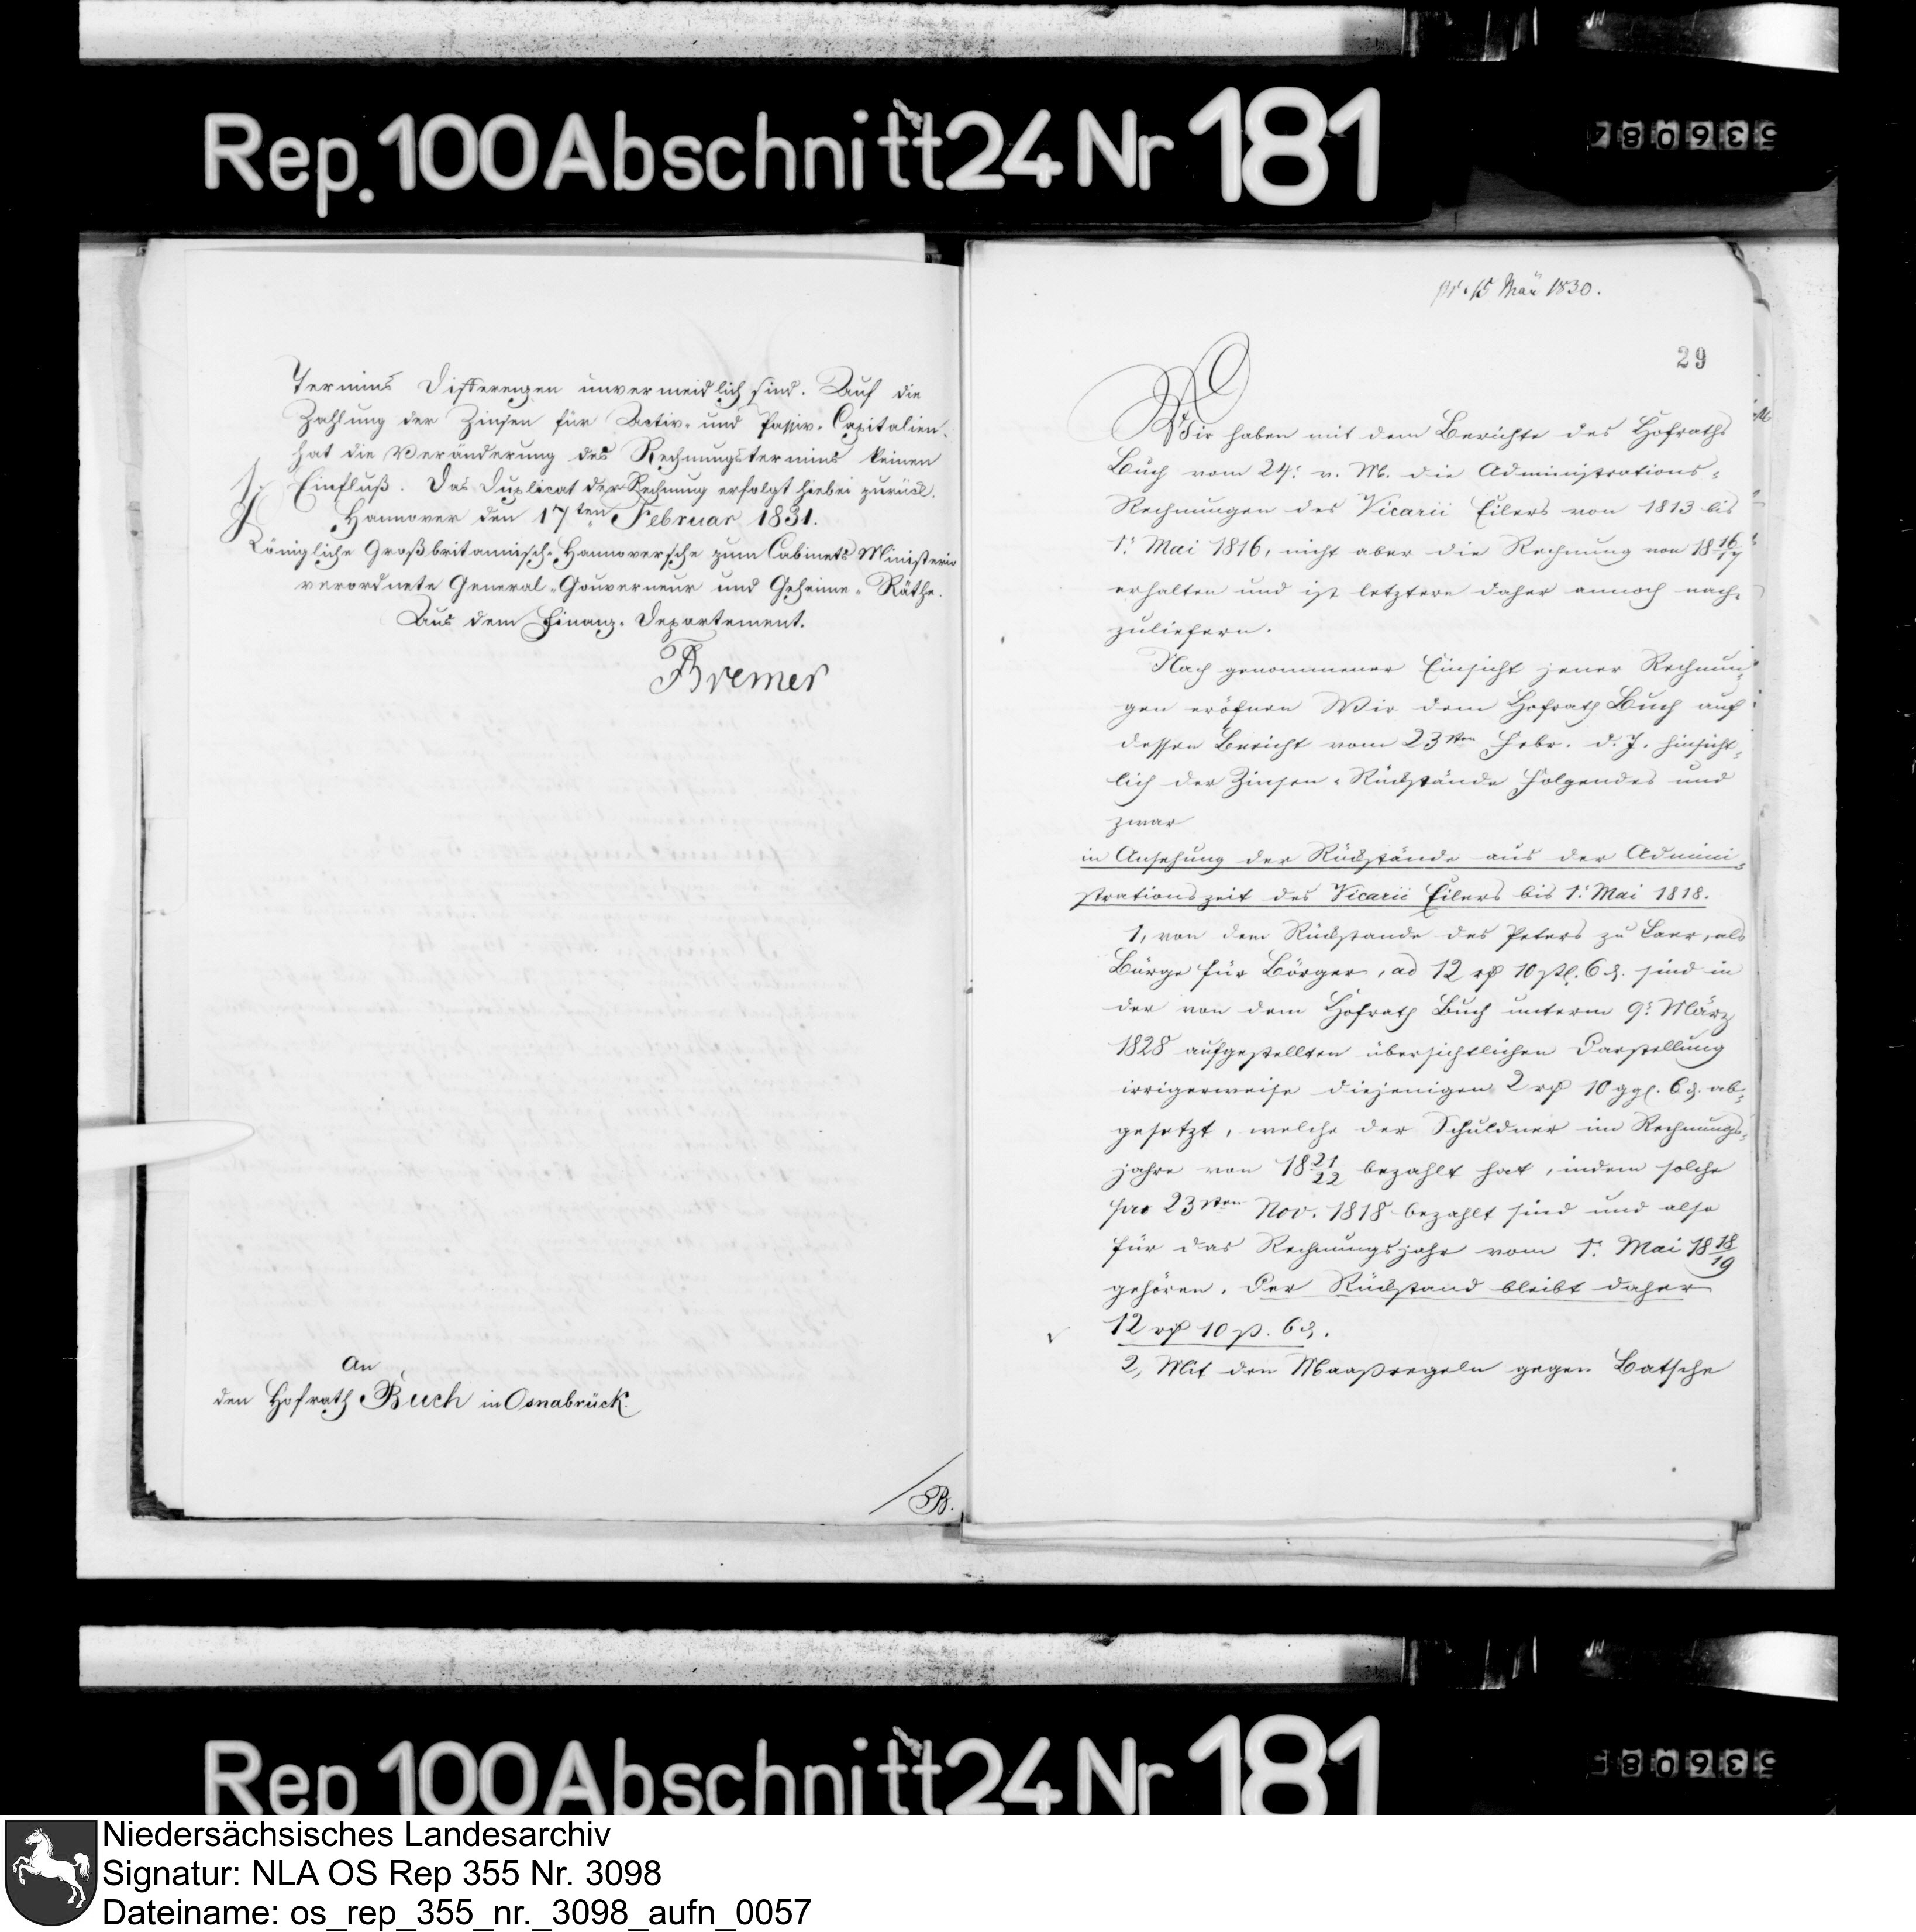 Rep. 100 Abschnitt 24 Nr 181
Termins Differenzen unvermeidlich sind. Auf die
Zahlung der Zinsen für Activ- und Passiv-Capitalien
hat die Veränderung des Rechnungstermins keinen
Einfluß. Das Duplicat der Rechnung erfolgt hiebei zurück.
Hannover den 17ten Februar 1831.
Königliche Großbritannisch-Hannoversche zum Cabinets-Ministerio
verordnete General-Gouverneur und Geheime-Räthe.
Aus dem Finanz-Departement.
Bremer
An
den Hofrath Buch in Osnabrück.
B.
pr. 15 März 1830.
29
Wir haben mit dem Berichte des Hofraths
Buch vom 24. v. M. die Administrations-
Rechnungen des Vicarii Eilers von 1813 bis
1. Mai 1816, nicht aber die Rechnung von 1816/17
erhalten und ist letztere daher annoch nach-
zuliefern.
Nach genommener Einsicht jener Rechnun-
gen eröfnen Wir dem Hofrath Buch auf
dessen Bericht vom 23sten Febr. d. J. hinsicht-
lich der Zinsen-Rückstände Folgendes und
zwar
in Ansehung der Rückstände aus der Admini-
strationszeit des Vicarii Eilers bis 1. Mai 1818.
1, von dem Rückstande des Peters zu Laer, als
Bürge für Börger, ad 12 rth 10 ßl. 6 d. sind in
der von dem Hofrath Buch unterm 9. März
1828 aufgestellten übersichtlichen Darstellung
irrigerweise diejenigen 2 rth 10 ggl. 6 d. ab-
gesetzt, welche der Schuldner im Rechnungs-
jahre von 1821/22 bezahlt hat, indem solche
pro 23sten Nov. 1818 bezahlt sind und also
für das Rechnungsjahr vom 1. Mai 1818/19
gehören. Der Rückstand bleibt daher
12 rth 10 ß. 6 d.
2, Mit den Maaßregeln gegen Batsche
Rep 100 Abschnitt 24 Nr 181
Niedersächsisches Landesarchiv
Signatur: NLA OS Rep 355 Nr. 3098
Dateiname: os_rep_355_nr._3098_aufn_0057